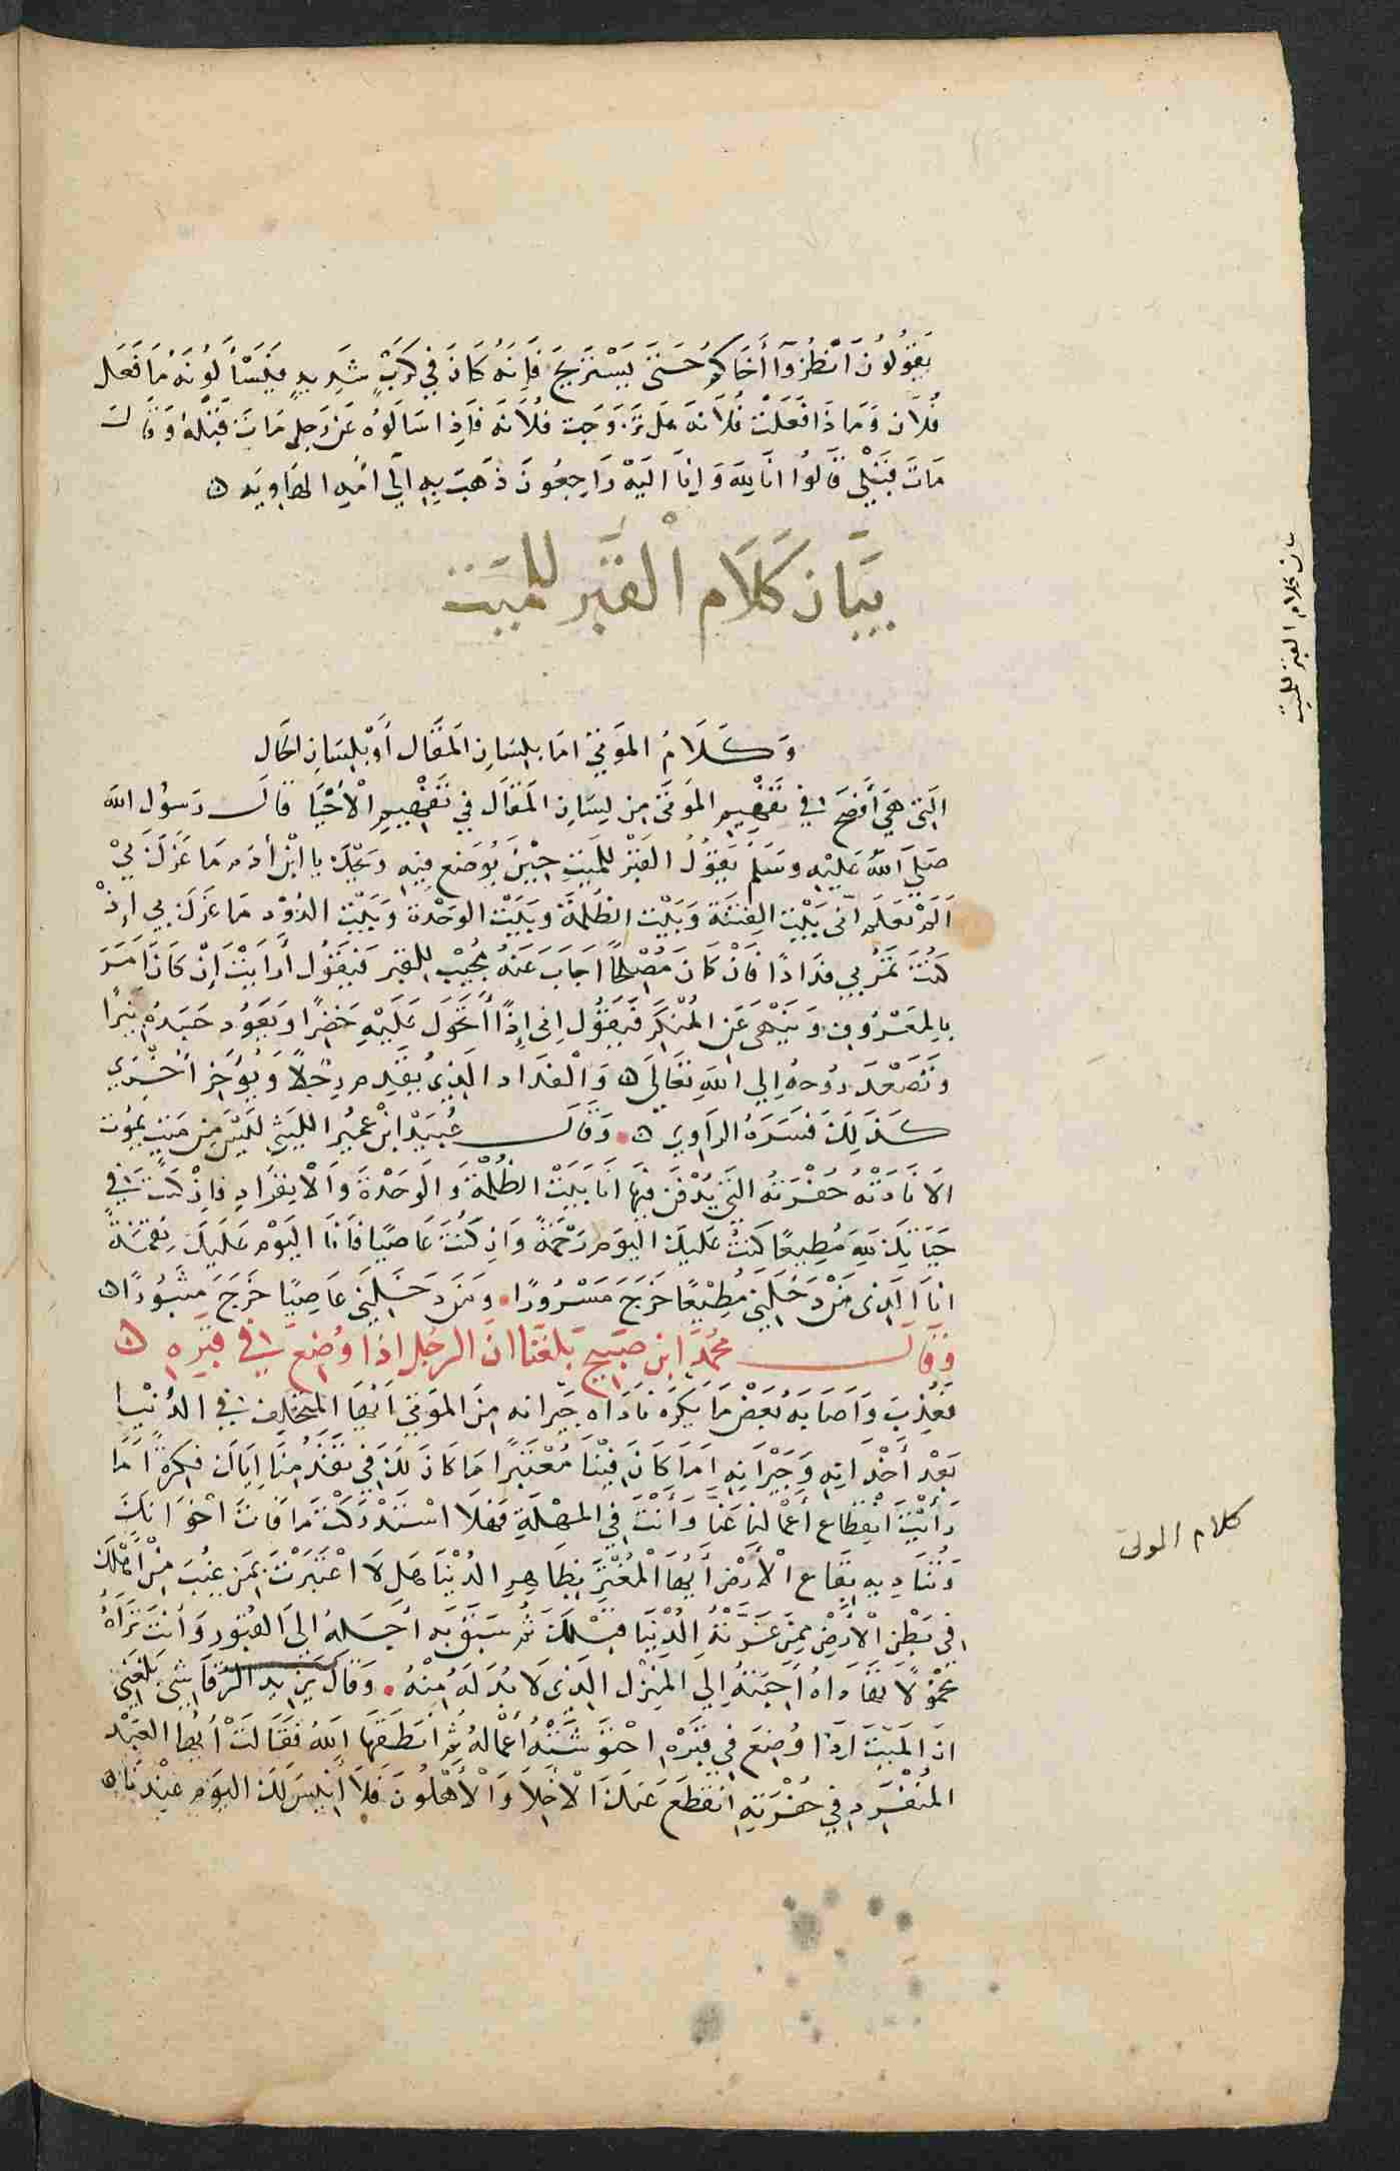 يَقُولُونَ انْظُرُوا أَخَاكُمْ حَتَّى يَسْتَرِيحَ فَإِنَّهُ كَانَ فِي كَرْبٍ شَدِيدٍ فَيَسْأَلُونَهُ مَا فَعَلَ
فُلَان وَمَا ذَا فَعَلَتْ فُلَانَة هَل تَزَوَجَت فُلَانَة فَاذِا سَالُوهُ عَنْ رَجلٍ مَاتَ قَبْلهُ وَقَالَ
مَاتَ قَبْلِي قَالُوا انَا لِلَّهِ وَانِا الَيْهِ رَاجِعُونَ ذُهِبَ بِهِ الَي أُمِهِ الهَاوِيَه ٥
بَيَان كَلَام الْقَبْر للمَيِّت
وَكَلَامُ المَوتَي امَا بلِسَانِ المَقَال أَوْ بْلِسَانِ الحَال
الَتِى هِيَ أَفْصَحُ فِي تَفْهِيمِ المَوتَى مِن لِسَانِ المَقَالِ فِي تَفْهِيمِ الْأَحْيَا قَالَ رَسُول الله
صَلَّى اللَّهُ عَلَيْهِ وسَلَمْ يَقُولُ القَبْر للمَيِتِ حِيْنَ يُوضَع فِيْهِ وَيْحَكَ يا ابْن أدَم مَا غَرَكَ بِيْ
اَلَمْ تَعْلَم اَنِى بَيْتُ الفِتْنَة وَبَيْت الظُلمَة وبَيْت الوَحْدَة وَبَيْتِ الدُوْد مَا غَرَكَ بِي اِذْ
كُنْتَ تَمُرُ بِي فَدَادًا فَانْ كَانَ مُصْلِحًا اجَابَ عَنْهُ مُجِيْب للقَبْر فَيَقُول أَرَايْتَ إِنْ كَانَ اَمَرَ
بِالمَعْرُوفِ وَيَنْهى عَن المُنْكَر فَيَقُول إنى إِذًا أَتَحَوَل عَلَيْهِ خَضِرًا وَيَعُود جَسَدُهُ نِيرًا
وَتَصْعَدَ رُوحهُ إلي اللهِ تَعَالَي ٥ وَالْفَدَاد الَذِي يُقَدِم رِجْلًا وَيُؤَخِر أُخْرَي
كَذَلِكَ فَسَرَهُ الرَاوِي ٥ وَقَالَ عُبَيَدْ ابْن عمُير الليَثِي لَيْسَ مِن مَيِتٍ يَمُوت
الَا نَادَتْهُ حُفْرَتهُ التَي يُدْفَن فِيَها انَا بَيَتُ الظُلْمَة وَالوَحْدَةَ وَالْانفِرَادِ فَاِنْ كُنْتَ فِي
حَيَاتِكَ لِلَّهِ مُطِيعًا كُنْتُ عَلَيكَ اليَوم رَحْمَةً وَانِ كُنْتَ عَاصِيًا فَانَا اليَوْم عَلَيكَ نِقْمَتَهً
انَا الَذِى مَنْ دَخَلَنِي مُطِيْعًا خَرَجَ مَسْرُورًا وَمَن دَخَلَنِي عَاصِيًا خَرَجَ مَثبُورًا ٥
وَقَالَ مُحَمَّد ابْن صَبِيح بَلَغَنَا انَ الرَجُل اذَا وُضِعَ فِي قَبْرِهِ ٥
فَعُذِبَ وَاصَابَهُ بَعْض مَا يَكرَه نَادَاه جِيْرانه مِنَ المَوتَي أَيُّهَا المُتَخَلِف فِي الدُنْيَا
بَعْد أَخْدَانِهِ وَجِيْرَانِه أَمَا كَانَ فِيْنَا مُعْتَبَرًا مَا كَانَ لَكَ فِي تَقَدُمِنَا إيَاكَ فِكرَةً اَمَا
رَأَيْتَ انْقِطَاع أَعْمالنِا عَنَّا وَأَنْتَ فِي المهْلَةِ فهَلَا اسْتَدْرَكْتَ مَا فَاتَ اخْوَانَكَ
وَتُنَادِيهِ بِقَاعِ الْأَرْضِ أَيُهَا الْمُغْتَرَ بِظَاهِرِ الدُنْيَا هَل لَا اعْتَبَرْتَ بمَن غُيبَ مِنْ أَهْلكَ
فِي بَطْنِ الْأَرْضِ مِمَنْ غَرَّتْهُ الدُنْيَا قَبْلكَ ثُمَ سَبَقَ بِهِ أَجَلهُ إلَىَ القُبُور وَأَنْتَ تَرَاهُ
مَحْمُوْلًا تهَادَاهُ أَحِبَتهُ إِلي المَنِزْل الَذِى لَا بُدَ لَهُ مِنْهُ وَقَالَ يَزِيد الرَّقَاشِي بَلَغَنِي
انَ المَيِتَ اذَا وُضِعَ فِي قَبْرِهِ احْتَوَشَتْهُ أَعْمَالهُ ثُم أنَطَقَهَا اللهُ فَقَالَتْ أيُها العَبْد
المُنْفَرِد فِي حُفْرَتِهِ انْقَطَعَ عَنكَ الأخِلَا وَالْأَهْلُونَ فَلَا أَنِيسَ لَكَ اليَومَ عِنْدنَا ٥
بيان كلام القبر للميت
كلام الموتى